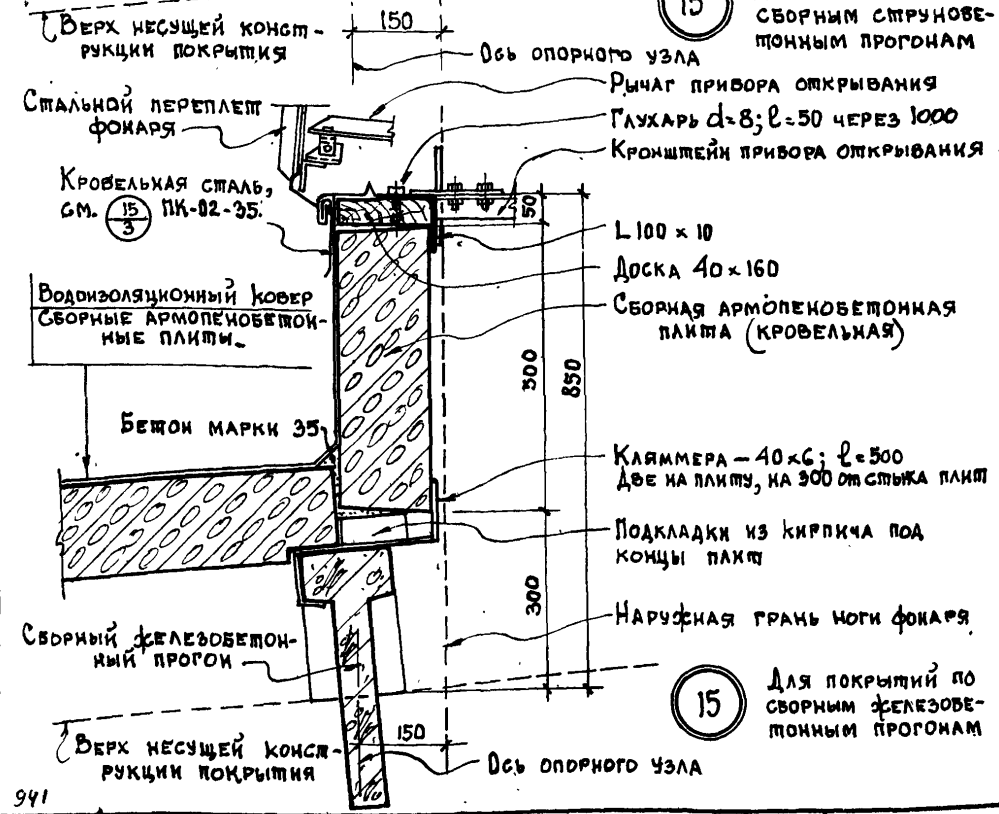 Верх несущей конст-
рукции покрытия
150
Ось опорного узла
15
сборным струнобе-
тонным прогонам
Стальной переплет
фонаря
Рычаг прибора открывания
Глухарь d=8; l=50 через 1000
Кронштейн прибора открывания
Кровельная сталь,
см. 15/3 ПК-02-35.
50
L 100 x 10
Доска 40 x 160
Водоизоляционный ковер
Сборные армопенобетон-
ные плиты.
Сборная армопенобетонная
плита (кровельная)
500
850
Бетон марки 35
Кляммера – 40x6; l=500
Две на плиту, на 300 от стыка плит
Подкладки из кирпича под
концы плит
300
Наружная грань ноги фонаря
Сборный железобетон-
ный прогон
15
Для покрытий по
сборным железобе-
тонным прогонам
150
Верх несущей конст-
рукции покрытия
Ось опорного узла
941